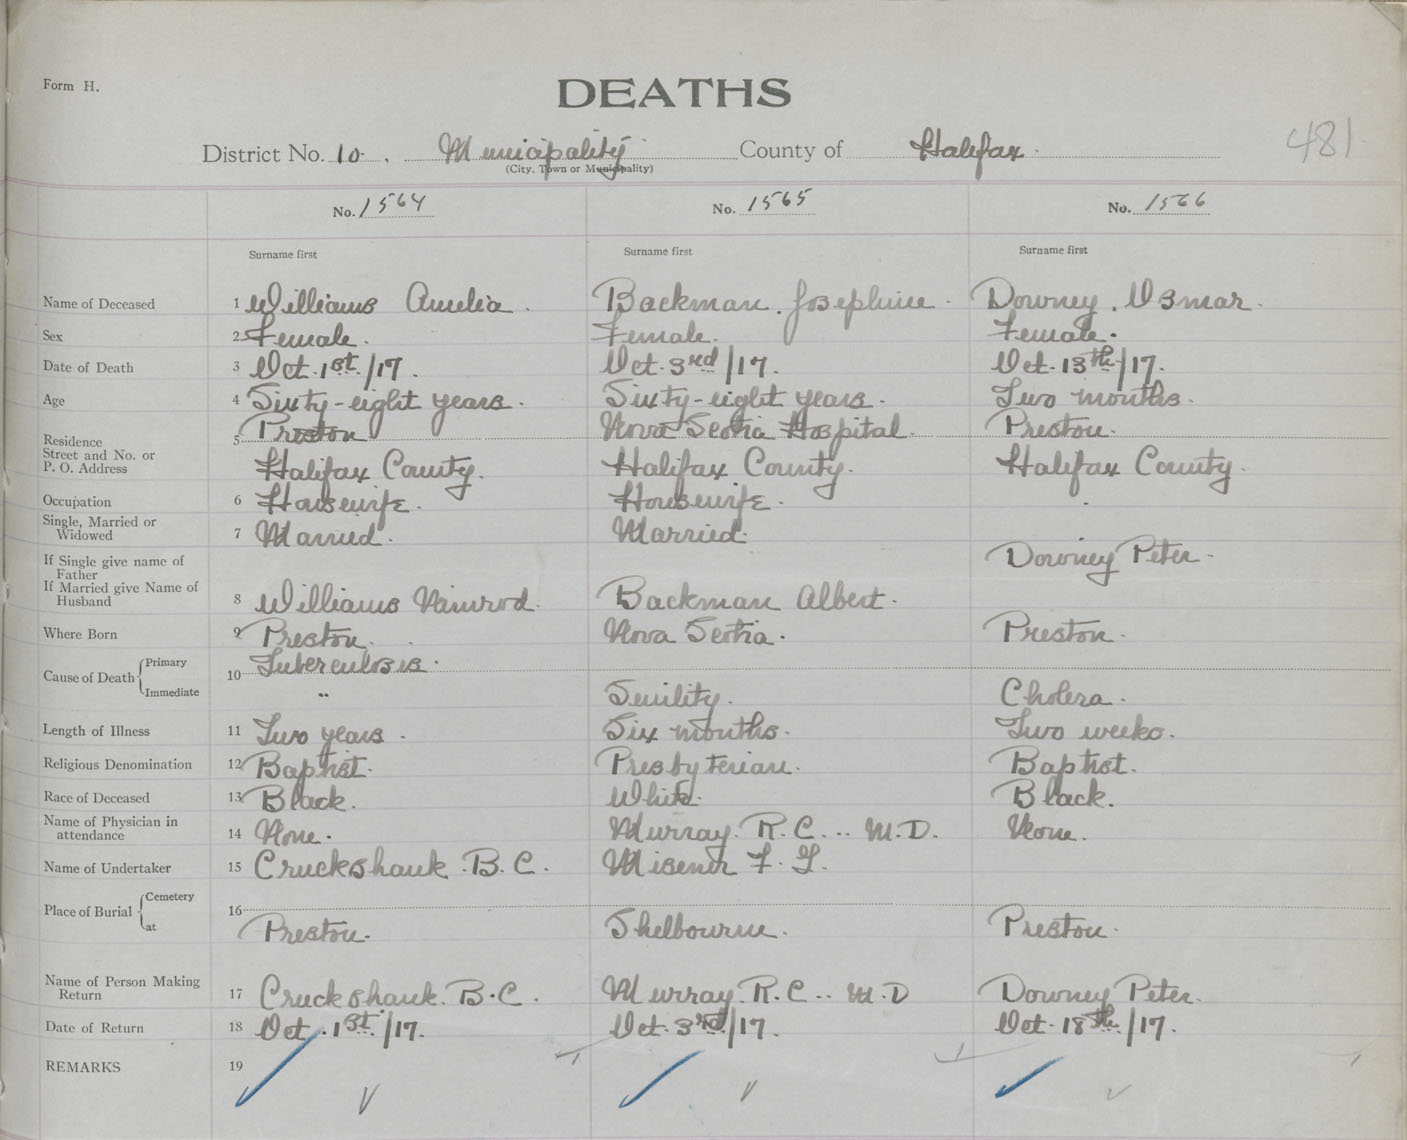 Form H.
DEATHS
481
District No. 10. Municipality County of Halifax.
(City, Town or Municipality)
No. 1564 No. 1565 No. 1566
Surname first Surname first Surname first
Name of Deceased 1 Williams Amelia. Backman, Josephine. Downey, Osmar.
Sex 2 Female. Female. Female.
Date of Death 3 Oct. 1st/17. Oct. 3rd/17. Oct. 13th/17.
Age 4 Sixty-eight years. Sixty-eight years. Two months.
Residence 5 Preston Nova Scotia Hospital. Preston.
Street and No. or
P. O. Address Halifax County. Halifax County. Halifax County.
Occupation 6 Housewife. Housewife.
Single, Married or
Widowed 7 Married. Married.
If Single give name of
Father Downey Peter.
If Married give Name of
Husband 8 Williams Nimrod. Backman Albert.
Where Born 9 Preston. Nova Scotia. Preston.
Cause of Death Primary 10 Tuberculosis.
Immediate " Senility. Cholera.
Length of Illness 11 Two years. Six months. Two weeks.
Religious Denomination 12 Baptist. Presbyterian. Baptist.
Race of Deceased 13 Black. White. Black.
Name of Physician in
attendance 14 None. Murray. R. C... M.D. None.
Name of Undertaker 15 Cruckshank. B. C. Misener F. G.
Place of Burial Cemetery 16
at Preston. Shelbourne. Preston.
Name of Person Making
Return 17 Cruckshank. B. C. Murray. R. C... M.D Downey Peter.
Date of Return 18 Oct. 1st/17. Oct. 3rd/17. Oct. 18th/17.
REMARKS 19